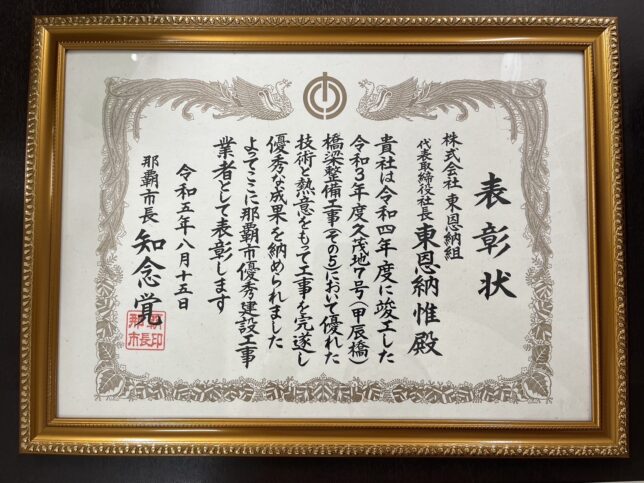 表彰状
株式会社 東恩納組
代表取締役社長 東恩納惟殿
貴社は令和四年度に竣工した
令和3年度久茂地7号(甲辰橋)
橋梁整備工事(その5)において優れた
技術と熱意をもって工事を完遂し
優秀な成果を納められました
よってここに那覇市優秀建設工事
業者として表彰します
令和五年八月十五日
那覇市長 知念覚
那覇
市長印